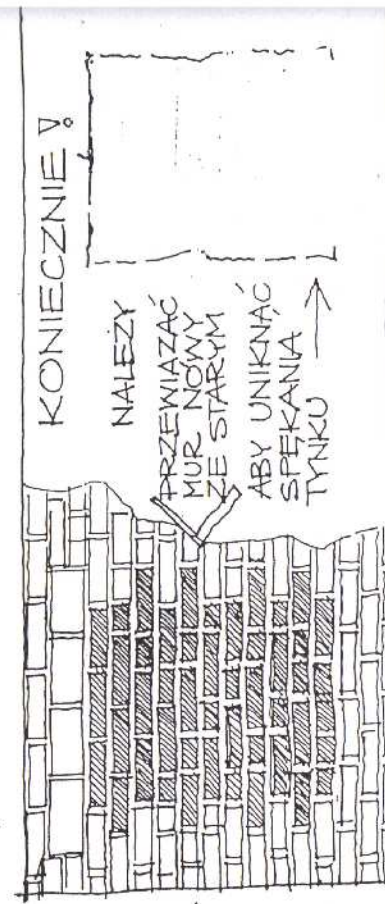 KONIECZNIE !
NALEŻY
PRZEWIĄZAĆ
MUR NOWY
ZE STARYM
ABY UNIKNĄĆ
SPĘKANIA
TYNKU